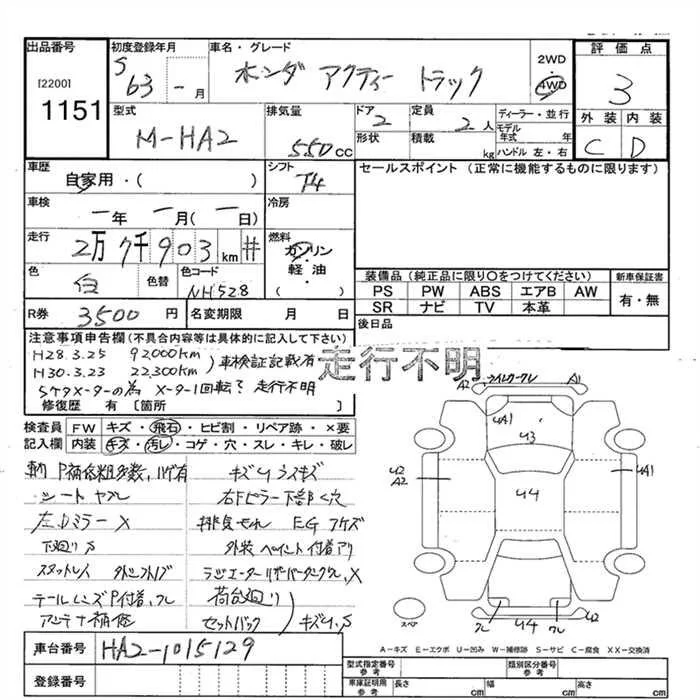 出品番号 初度登録年月 車名・グレード 2WD 評価点
[2200] S 63 - 月 ホンダ アクティー トラック 4WD 3
1151 型式 排気量 ドア 定員 ディーラー・並行 外装 内装
M-HA2 550cc 2 2人 モデル年式 年 C D
形状 積載 kg ハンドル 左・右
車歴 シフト セールスポイント (正常に機能するものに限ります)
自家用・( ) T4
車検 冷房
一年 一月(一日)
走行 燃料
2万7千903km # ガソリン
軽油・
色 色替 色コード 装備品(純正品に限り○をつけてください) 新車保証書
白 NH528 PS PW ABS エアB AW 有・無
R券 3500円 名変期限 月 日 SR ナビ TV 本革
注意事項申告欄(不具合内容等は具体的に記入) 後日品
H28.3.25 92,000km 車検証記載有 走行不明
H30.3.23 22,300km
5ケタメーターの為 メーター1回転? 走行不明
修復歴 有 [箇所
検査員 FW キズ・飛石・ヒビ割・リペア跡・×要
記入欄 内装 キズ・汚レ・コゲ・穴・スレ・キレ・破レ
シート ヤブレ 右Fピラー下部く穴
左Dミラー X 排気もれ EG
下廻りS 外装ペイント付着アリ
テールレンズP付着,ワレ 荷台廻り
アンテナ補修 セットバック キズU,S
A2 A1
UA1
U3
U2 A2 U4 UA1
スペア ワレ U4 ワレ U2
A-キズ E-エクボ U-凹み W-補修跡 S-サビ C-腐食 XX-交換済
車台番号 HA2-1015129
型式指定番号 参考 類別区分番号 参考
登録番号 車庫証明用 参考 長さ cm 幅 cm 高さ cm